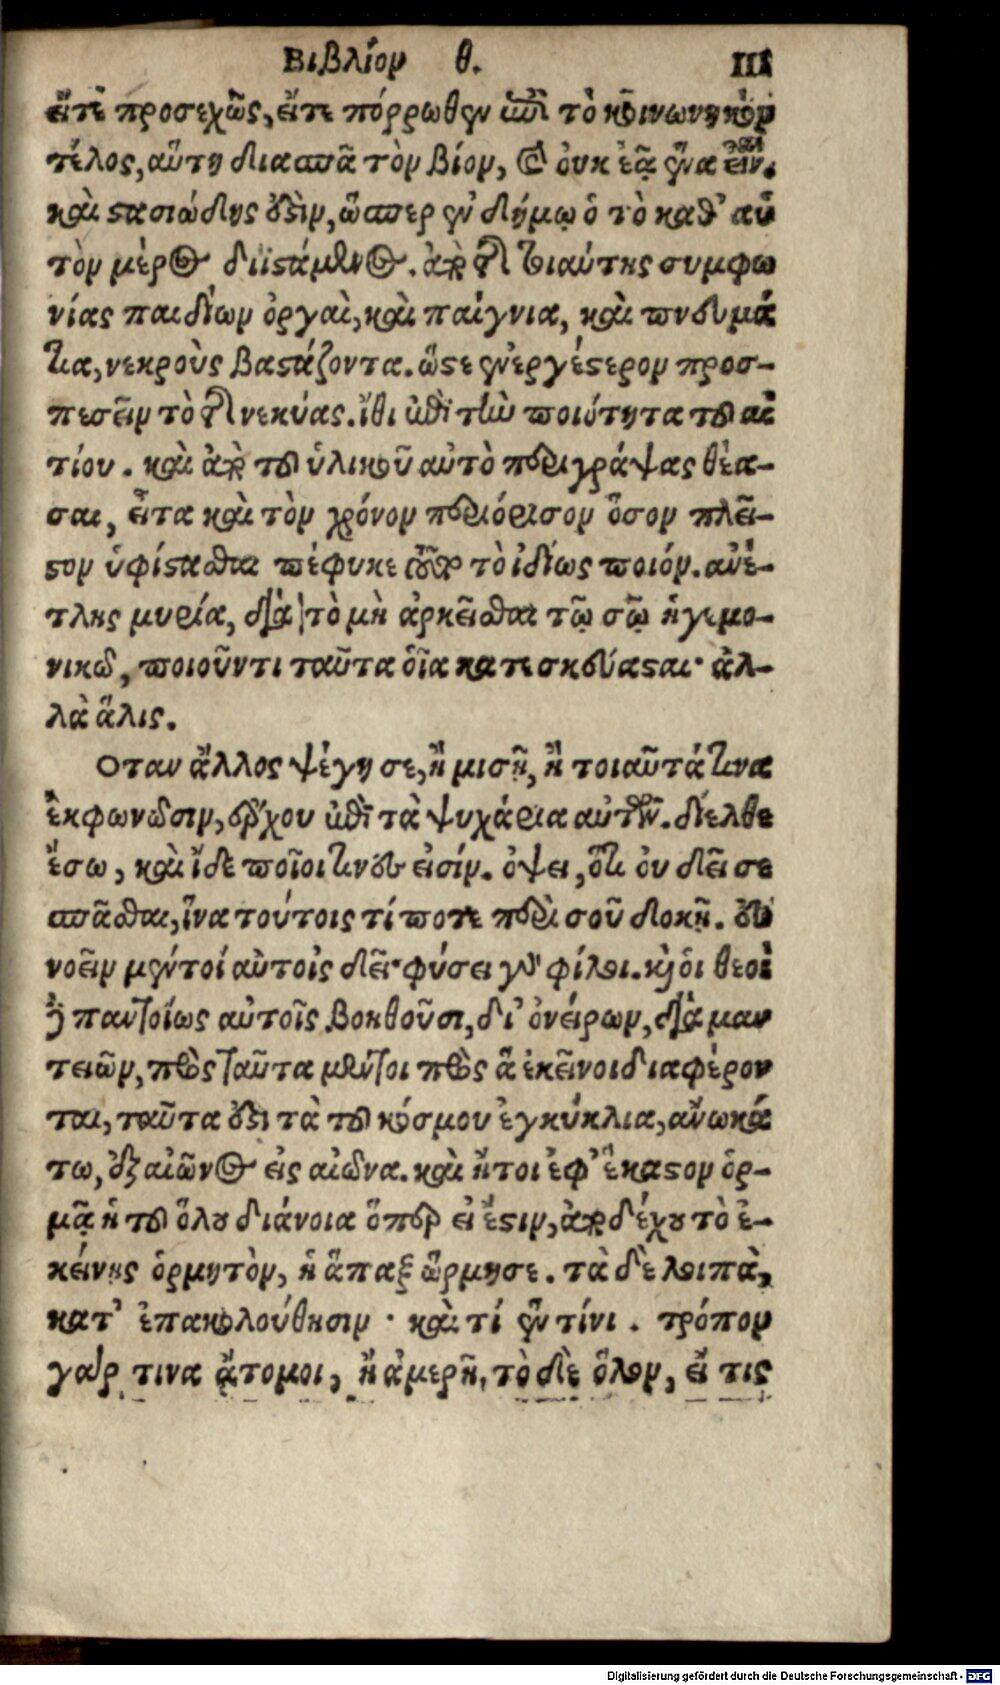 Βιβλίον θ. 111
εἴτε προσεχῶς, εἴτε πόρρωθεν ἐπὶ τὸ κοινωνικὸν
τέλος, αὕτη διασπᾷ τὸν βίον, καὶ οὐκ ἐᾷ ἕνα εἶναι.
καὶ στασιώδης ἐστὶν, ὥσπερ ἐν δήμῳ ὁ τὸ καθ’ αὑ
τὸν μέρος διϊστάμενος. ἀπὸ τῆς τοιαύτης συμφω
νίας παιδίων ὀργαὶ, καὶ παίγνια, καὶ πνευμά
τια, νεκροὺς βαστάζοντα. ὥστε ἐνεργέστερον προσ-
πεσεῖν τὸ τῆς νεκύας. ἴθι ἐπὶ τὴν ποιότητα τοῦ αἰ
τίου. καὶ ἀπὸ τοῦ ὑλικοῦ αὐτὸ περιγράψας θέα-
σαι, εἶτα καὶ τὸν χρόνον περιόρισον ὅσον πλεῖ-
στον ὑφίστασθαι πέφυκε τοῦτο τὸ ἰδίως ποιόν. ἀνέ-
τλης μυρία, διὰ τὸ μὴ ἀρκεῖσθαι τῷ σῷ ἡγεμο-
νικῷ, ποιοῦντι ταῦτα οἷα κατεσκεύασαι· ἀλ-
λὰ ἅλις.
Οταν ἄλλος ψέγῃ σε, ἢ μισῇ, ἢ τοιαῦτά τινα
ἐκφωνῶσιν, ἔρχου ἐπὶ τὰ ψυχάρια αὐτῶν. δίελθε
ἔσω, καὶ ἴδε ποῖοι τινές εἰσίν. ὄψει, ὅτι οὐ δεῖ σε
σπᾶσθαι, ἵνα τούτοις τί ποτε περὶ σοῦ δοκῇ. εὐ
νοεῖν μέντοί αὐτοῖς δεῖ· φύσει γὰρ φίλοι. καὶ οἱ θεοὶ
δὲ παντοίως αὐτοῖς βοηθοῦσι, δι’ ὀνείρων, διὰ μαν
τειῶν, πρὸς ταῦτα μέντοι πρὸς ἃ ἐκεῖνοι διαφέρον
ται, ταῦτα ἐστι τὰ τοῦ κόσμου ἐγκύκλια, ἄνω κά
τω, ἐξ αἰῶνος εἰς αἰῶνα. καὶ ἤτοι ἐφ’ ἕκαστον ὁρ-
μᾷ ἡ τοῦ ὅλου διάνοια ὅπερ εἰ ἔστιν, ἀποδέχου τὸ ἐ-
κείνης ὁρμητὸν, ἢ ἅπαξ ὥρμησε. τὰ δὲ λοιπὰ,
κατ’ ἐπακολούθησιν· καὶ τί ἐν τίνι. τρόπον
γάρ τινα ἄτομοι, ἢ ἀμερῆ, τὸ δὲ ὅλον, εἴ τις
Digitalisierung gefördert durch die Deutsche Forschungsgemeinschaft - DFG